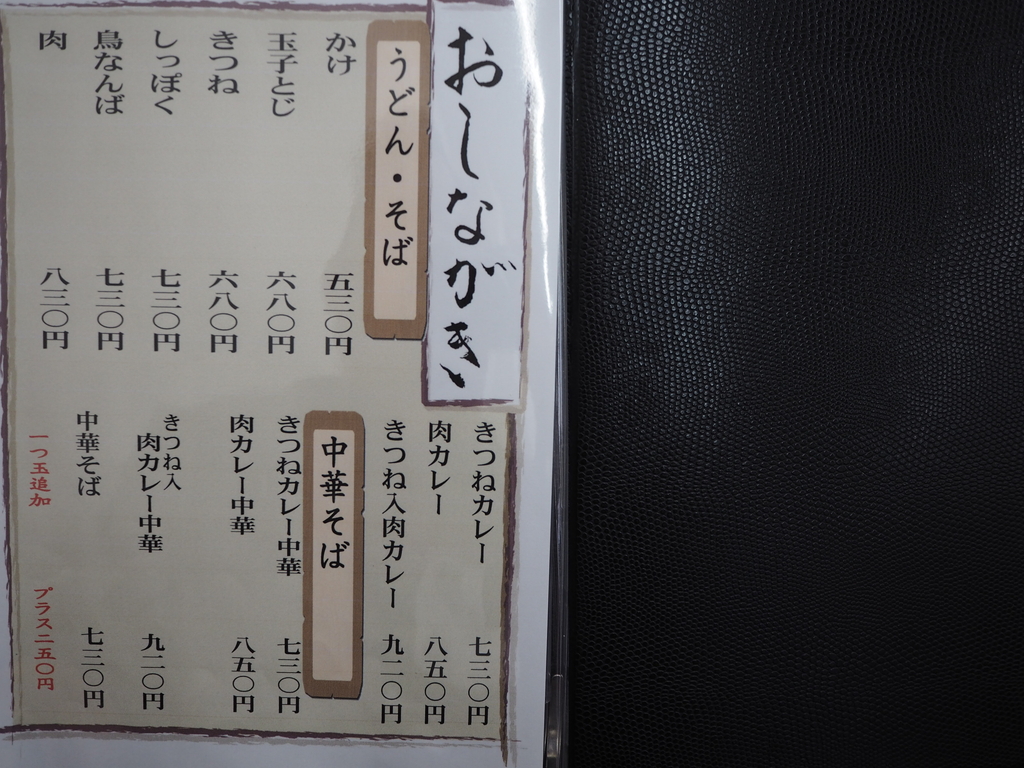 おしながき
うどん・そば
かけ 五三〇円
玉子とじ 六八〇円
きつね 六八〇円
しっぽく 七三〇円
鳥なんば 七三〇円
肉 八三〇円
きつねカレー 七三〇円
肉カレー 八五〇円
きつね入肉カレー 九二〇円
中華そば
きつねカレー中華 七三〇円
肉カレー中華 八五〇円
きつね入
肉カレー中華 九二〇円
中華そば 七三〇円
一つ玉追加 プラス二五〇円